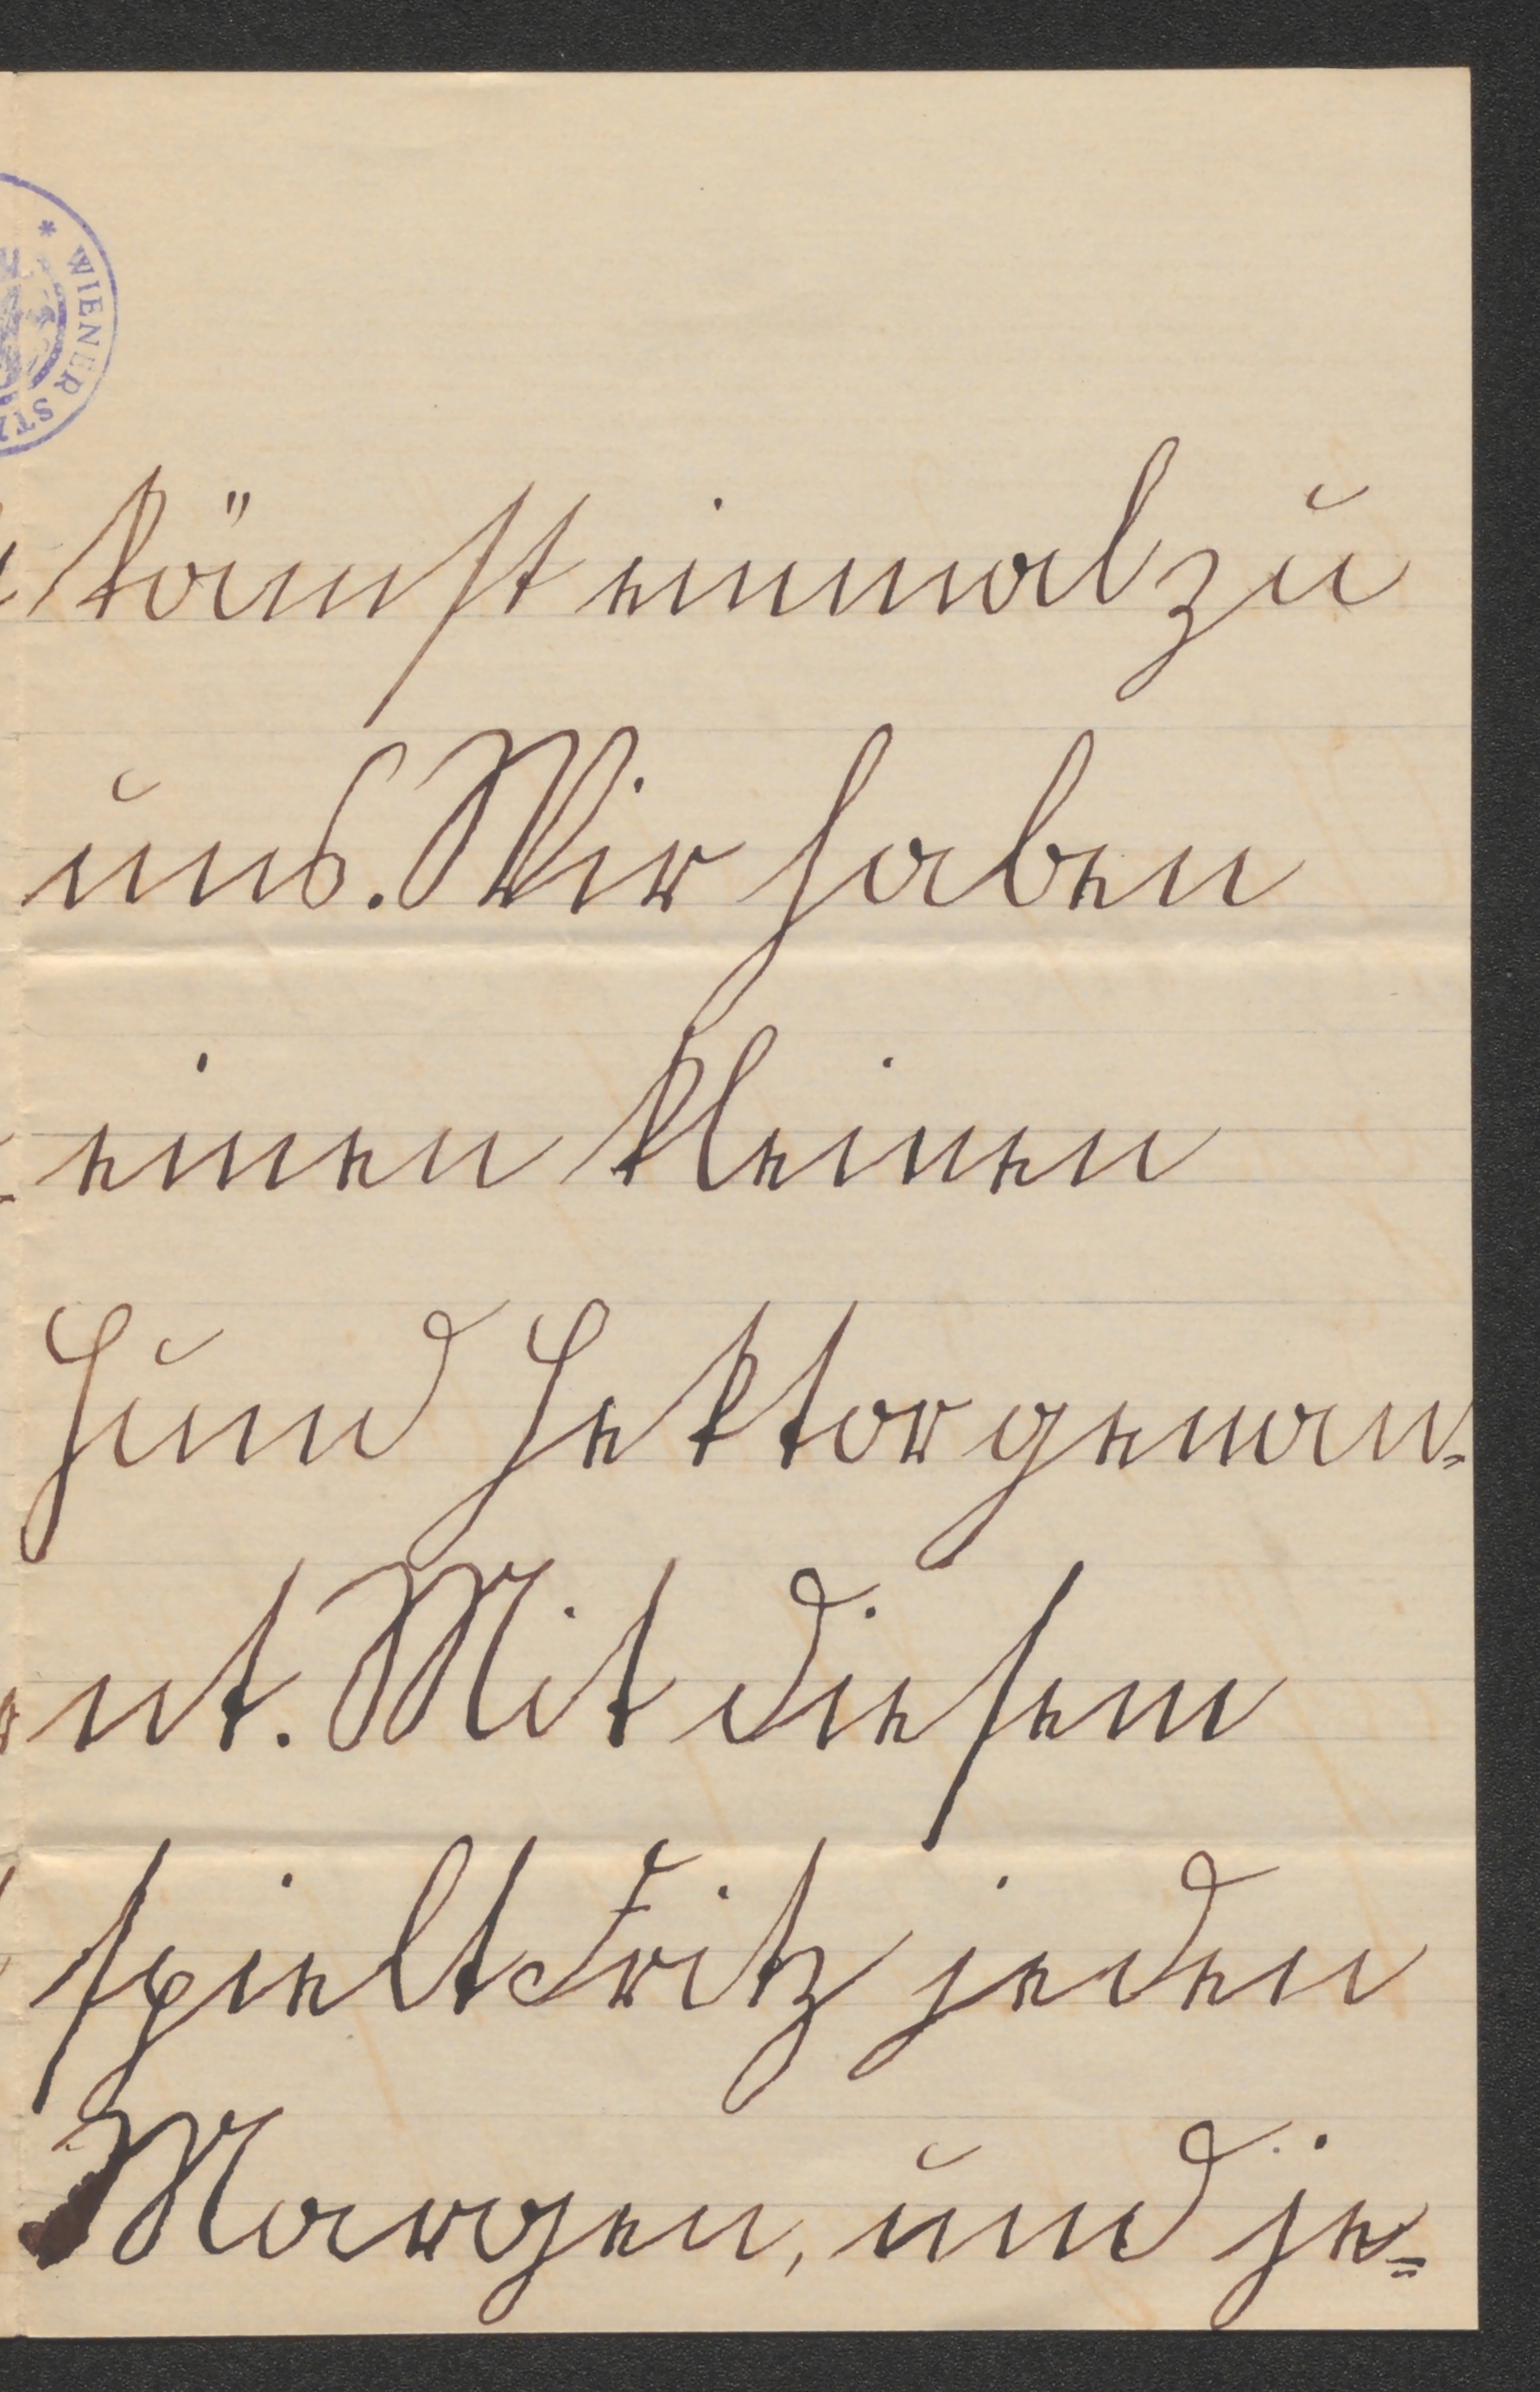 WIENER STA
kämst einmal zu
uns. Wir haben
einen kleinen
Hund Hektor genan-
nt. Mit diesem
spielt Fritz jeden
Morgen, und je-